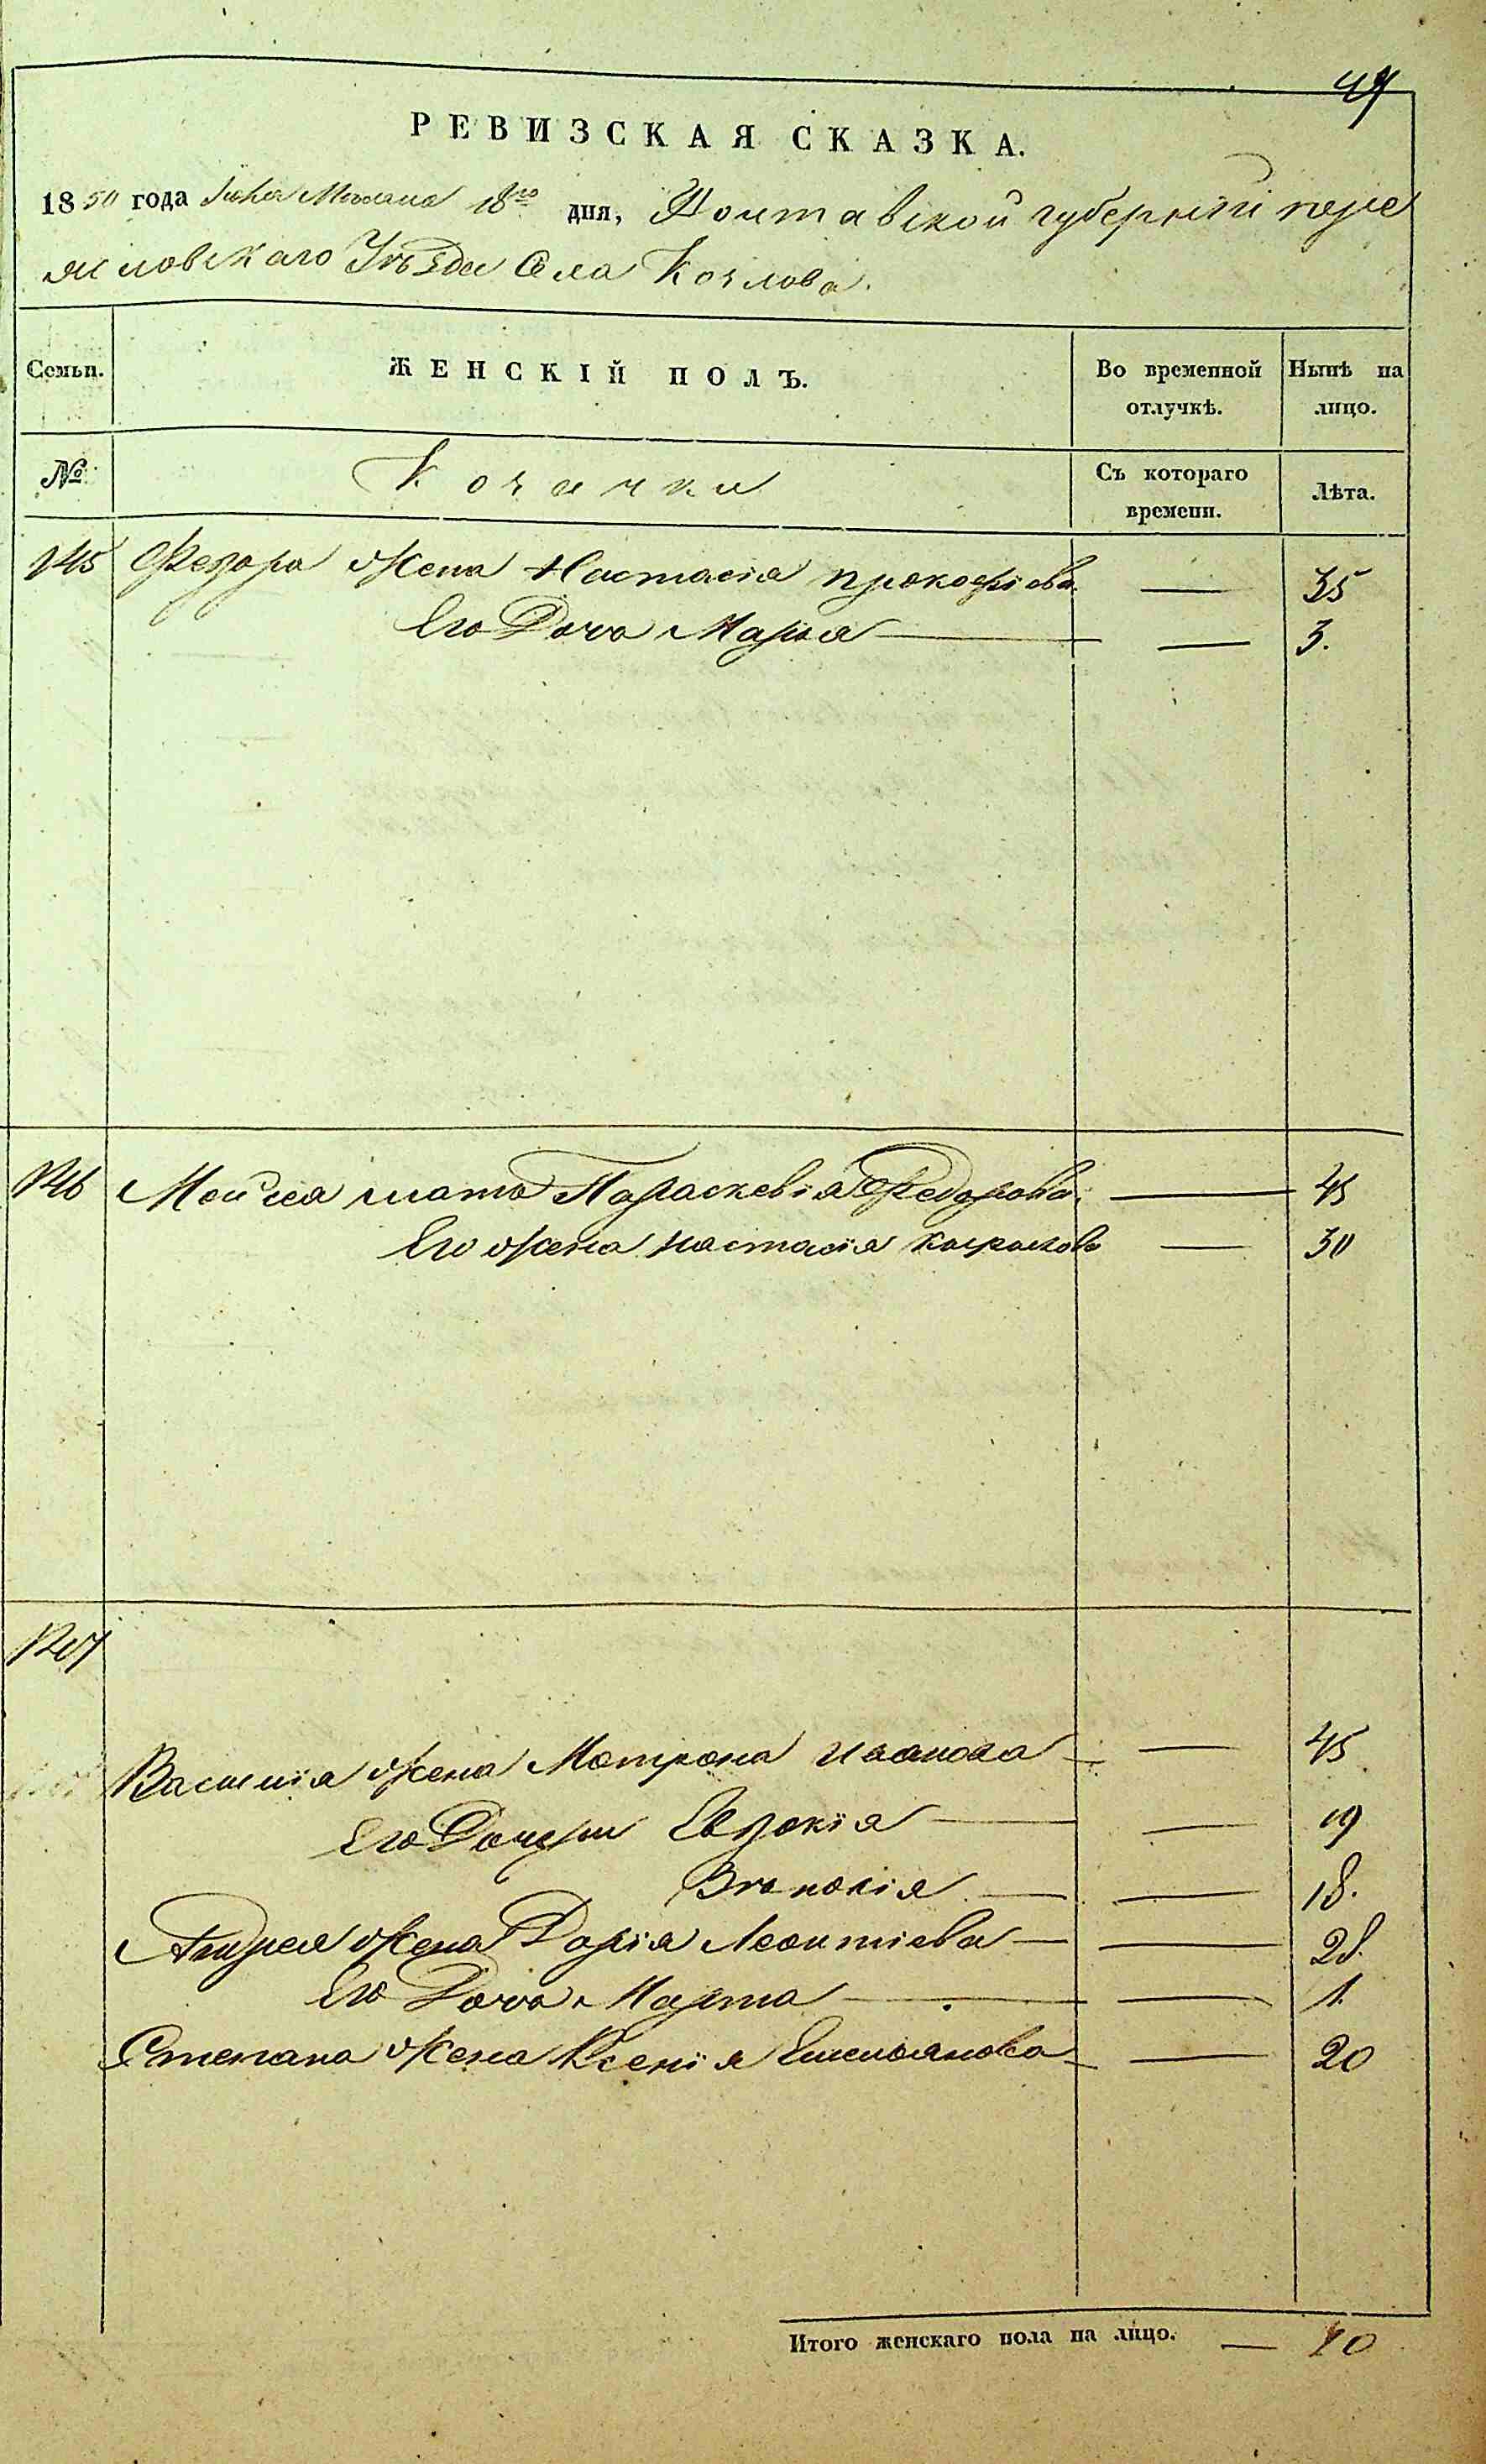 49
РЕВИЗСКАЯ СКАЗКА.
1850 года Мѣсяца 18го дня, Полтавской губерніи пере
яславскаго Уѣзда Села Козлова.
Семьи. ЖЕНСКІЙ ПОЛЪ. Во временной отлучкѣ. Нынѣ на лицо.
№ Козачки Съ котораго времени. Лѣта.
145 Федора жена Настасія прокофіева — 35
Его Дочь Марья — 3.
146 Моисея мать Параскевія Федорова — 45
Его жена настасія — 30
147
Василія жена Мотрона иванова — 45
Его Дочери Евдокія — 19
— 18.
Андрея жена Дарія Леонтіева — 28.
Его Дочь Марта — 1.
Степана жена Ксенія Емельянова — 20
Итого женскаго пола на лицо. — 10